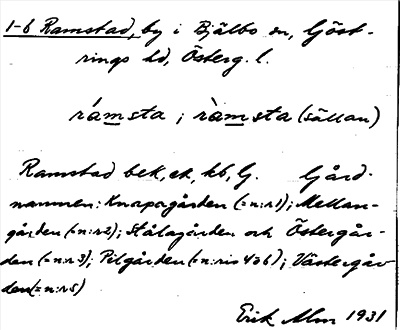 1-6 Ramstad, by i Bjälbo sn, Göst-
rings hd, Österg. l.
rámsta ; ràmsta (sällan)
Ramstad bek, ek, kb, G. Gård-
namnen: Knapagården (=n:r1); Mellan-
gården (=n:r2); Stålagården och Östergår-
den (=n:r3); Pilgården (=n:ris 4o6); Västergår
den (=n:r5)
Erik Alm 1931